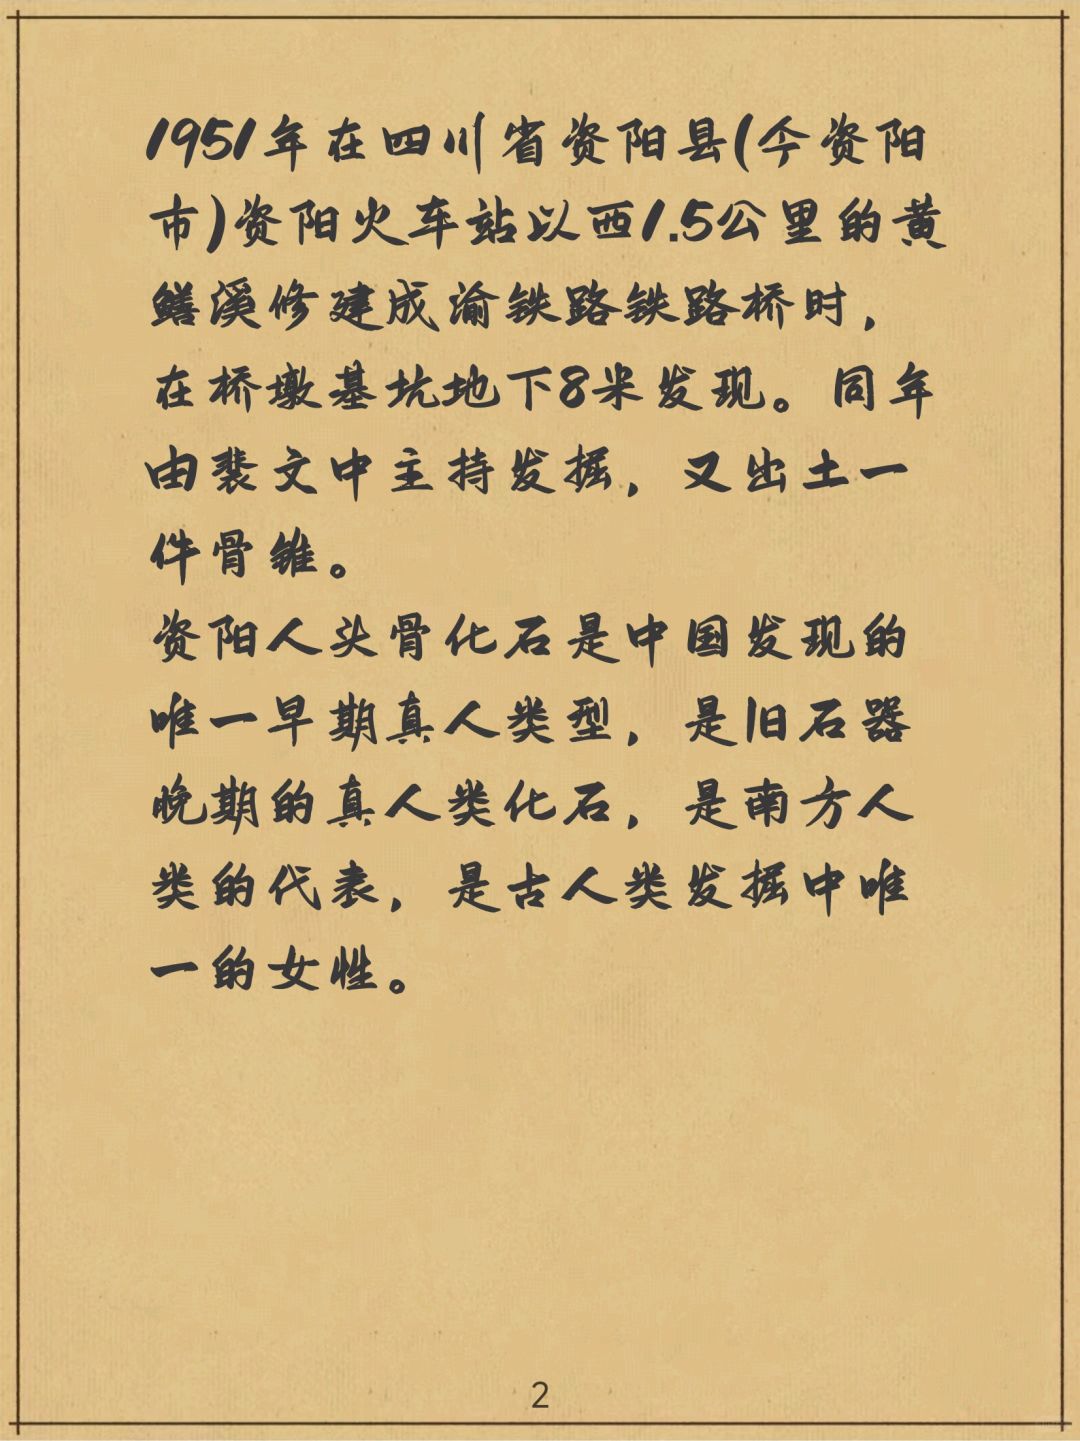 1951年在四川省资阳县(今资阳
市)资阳火车站以西1.5公里的黄
鳝溪修建成渝铁路铁路桥时，
在桥墩基坑地下8米发现。同年
由裴文中主持发掘，又出土一
件骨锥。
资阳人头骨化石是中国发现的
唯一早期真人类型，是旧石器
晚期的真人类化石，是南方人
类的代表，是古人类发掘中唯
一的女性。
2